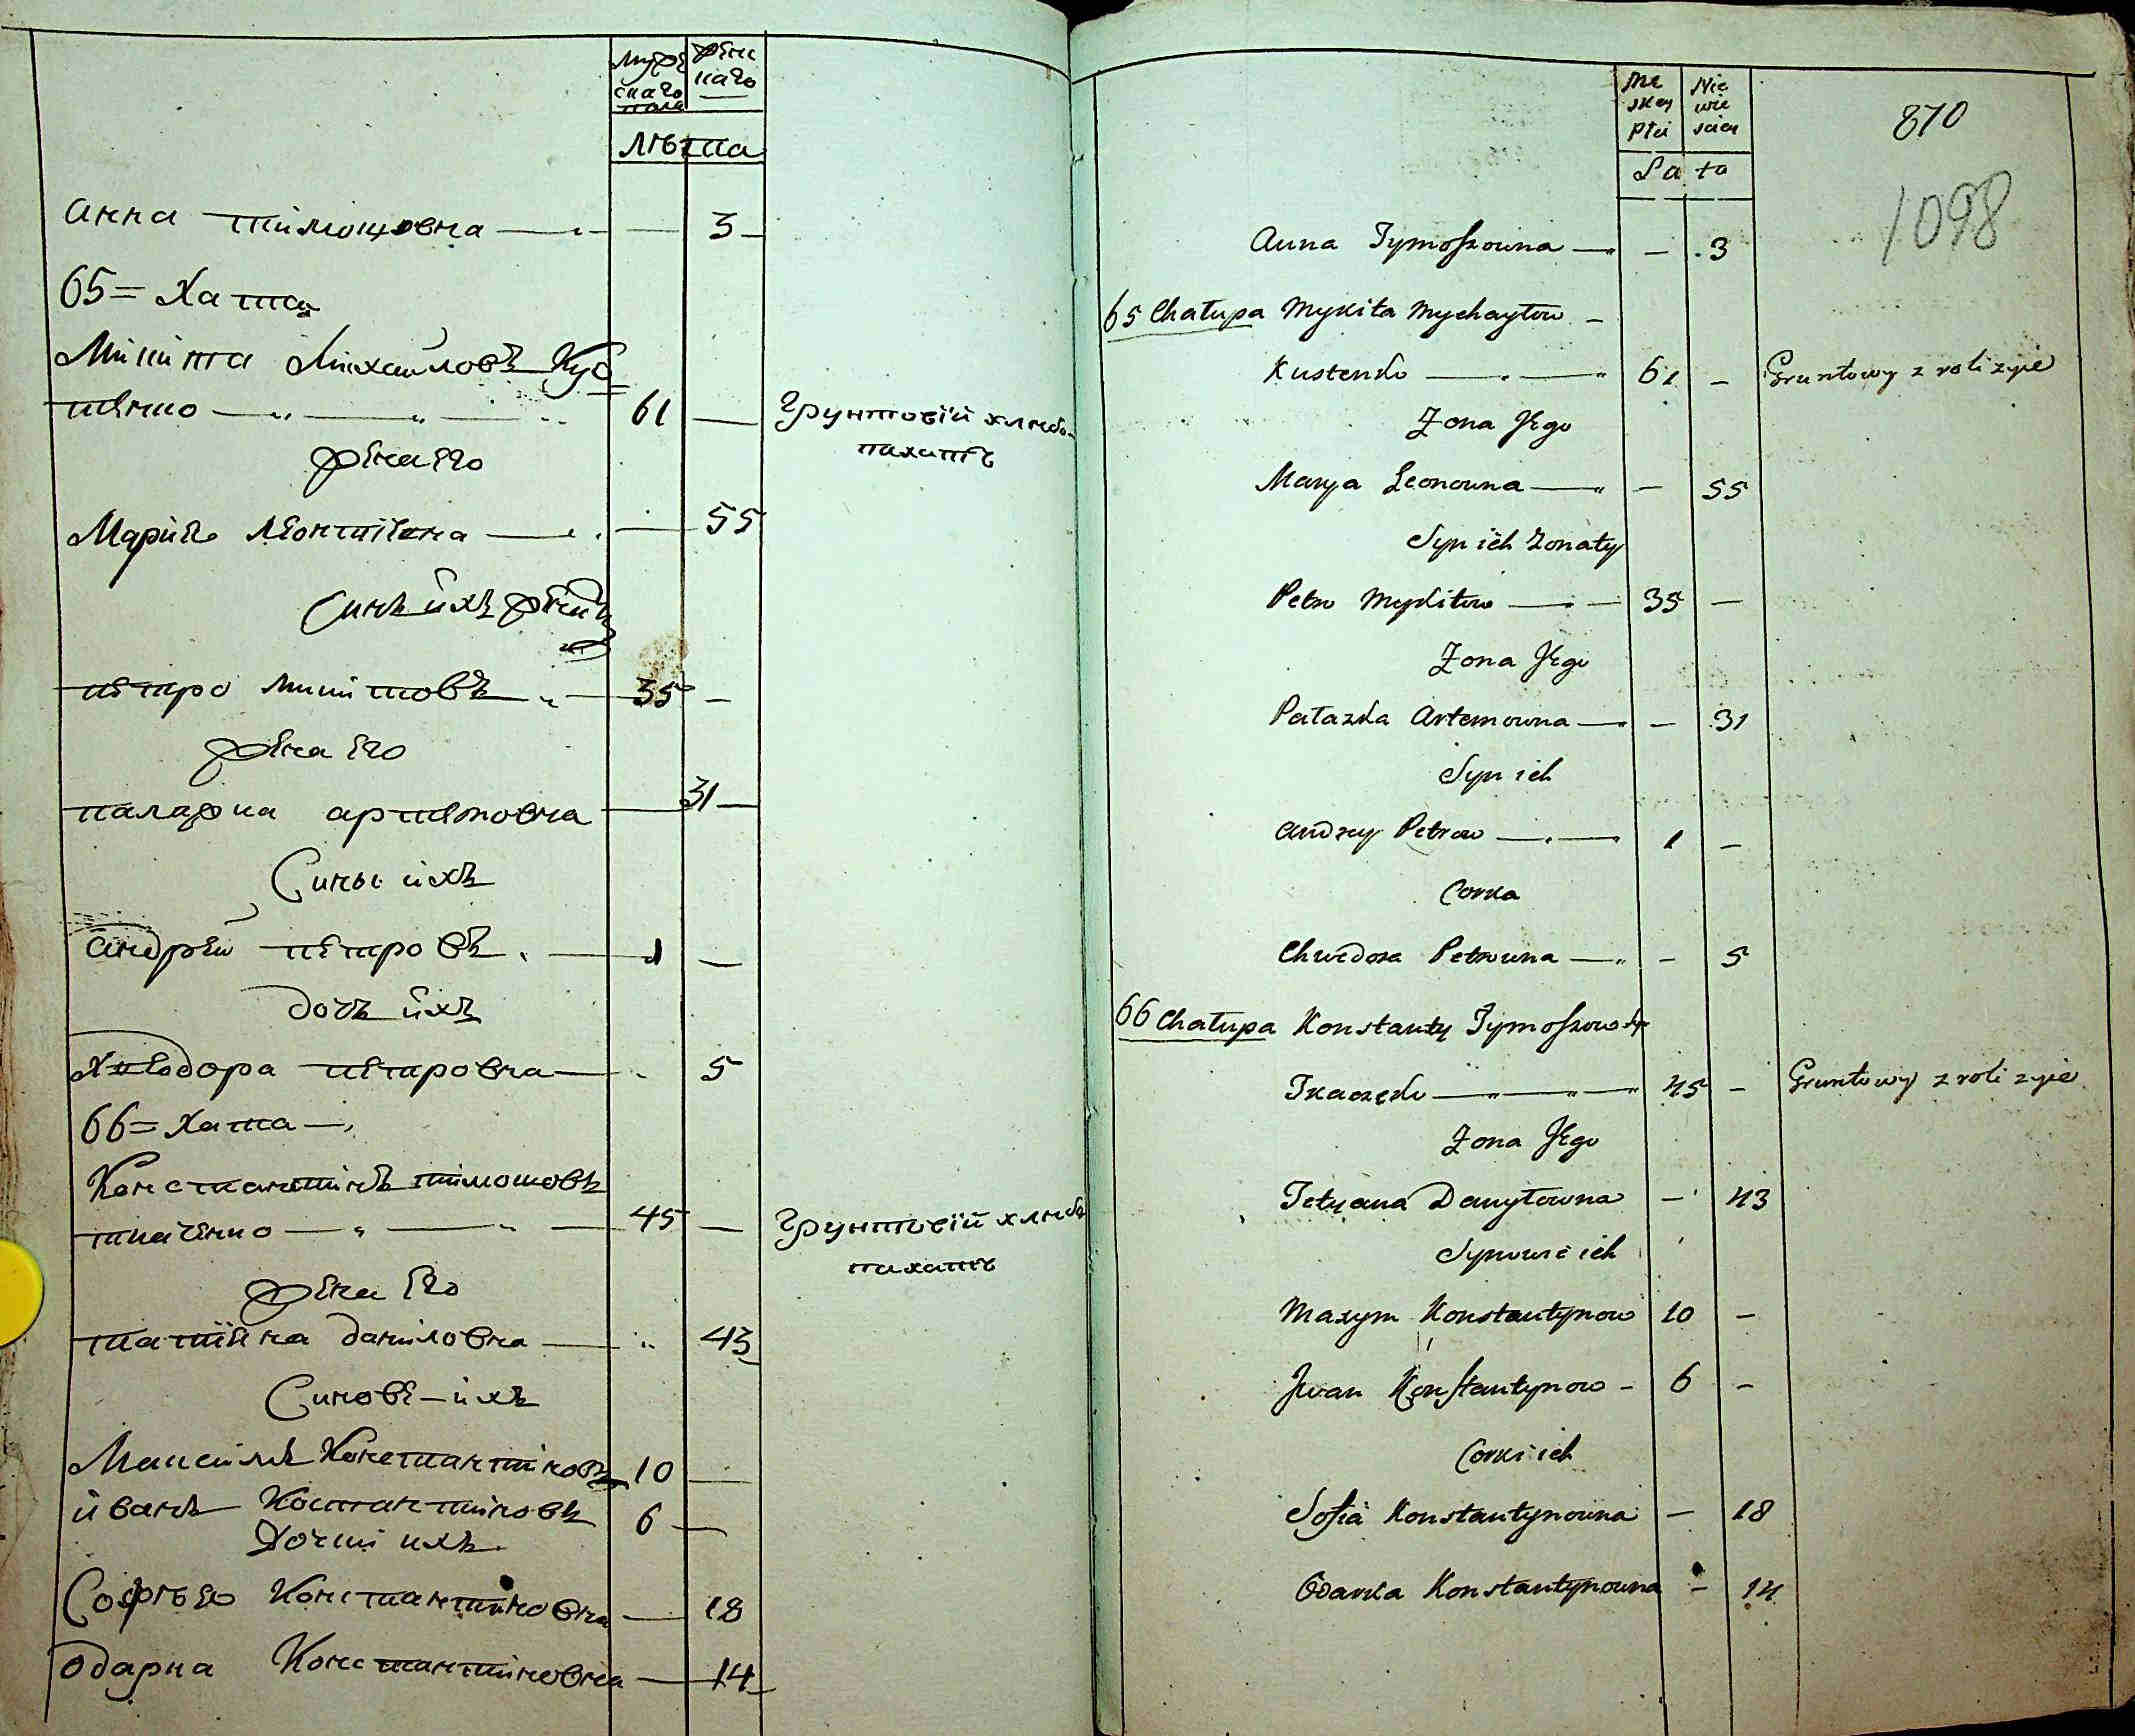 мужескаго пола
женскаго
лѣта
анна тимошовна 3
65 = Хата
Микита Михайловъ Кус
тенко 61 Грунтовій хлѣбо-
жена его пахатъ
Марія Леонтіевна 55
Синъ ихъ
петро микитовъ 35
жена его
палажка артемовна 31
Сины ихъ
андрей петровъ 1
дочь ихъ
петровна 5
66 = хата
Константинъ тимошовъ
ткаченко 45 Грунтовій хлѣбо
жена его пахатъ
татіяна даниловна 43
Синове ихъ
Максимъ Константиновъ 10
иванъ Костантиновъ 6
Дочки ихъ
Константиновна 18
одарка Константиновна 14
Me skey płci
Nie wie sciey
Lata
870
1098
Anna Tymoszowna 3
65 Chałupa Mykita Mychayłow
Kustenko 61 Gruntowy z roli zyie
Zona Jego
Marya Leonowna 55
Syn ich zonaty
Petro Mykitow 35
Zona Jego
Pałazka Artemowna 31
Syn ich
Andrzey Petrow 1
Corka
Chwedora Petrowna 5
66 Chałupa Konstanty Tymoszow
Tkaczenko 45 Gruntowy z roli zyie
Zona Jego
Tetyana Danyłowna 43
Synowie ich
Maxym Konstantynow 10
Jwan Konstantynow 6
Corki ich
Sofia Konstantynowna 18
Odarka Konstantynowna 14